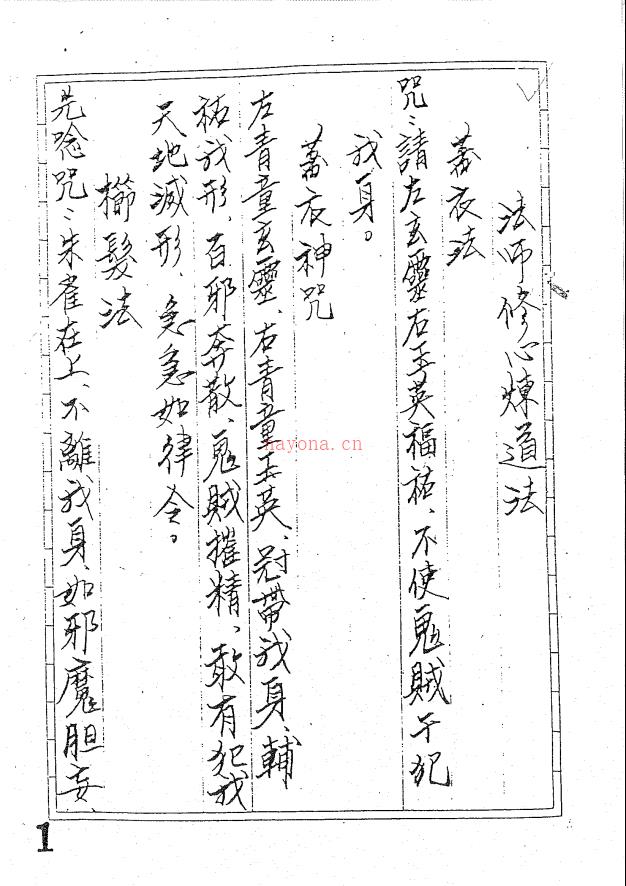 法师修心煉道法
着衣法
咒:請左玄靈右玉英福祐、不使鬼賊干犯
我身。
着衣神咒
左青童玄靈、右青童玉英、冠帶我身、輔
祐我形、百邪奔散、鬼賊摧精、敢有犯我
天地滅形、急急如律令。
櫛髮法
先唸咒:朱雀在上、不離我身、如邪魔胆妄、
nayona.cn
1